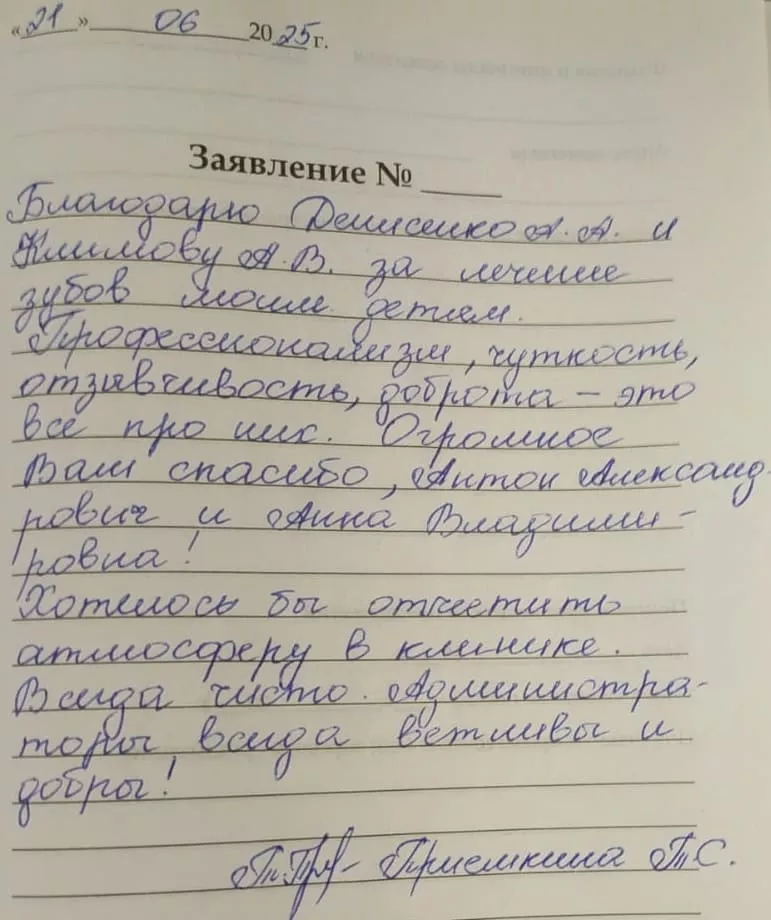 «21» 06 2025 г.
Заявление № ____
Благодарю Денисенко А.А. и
Климову А.В. за лечение
зубов моим детям.
Профессионализм, чуткость,
отзывчивость, доброта – это
все про них. Огромное
Вам спасибо, Антон Александ-
рович и Анна Владими-
ровна!
Хотелось бы отметить
атмосферу в клинике.
Всегда чисто. Администра-
торы всегда ветливы и
добры!
Приемкина Т.С.